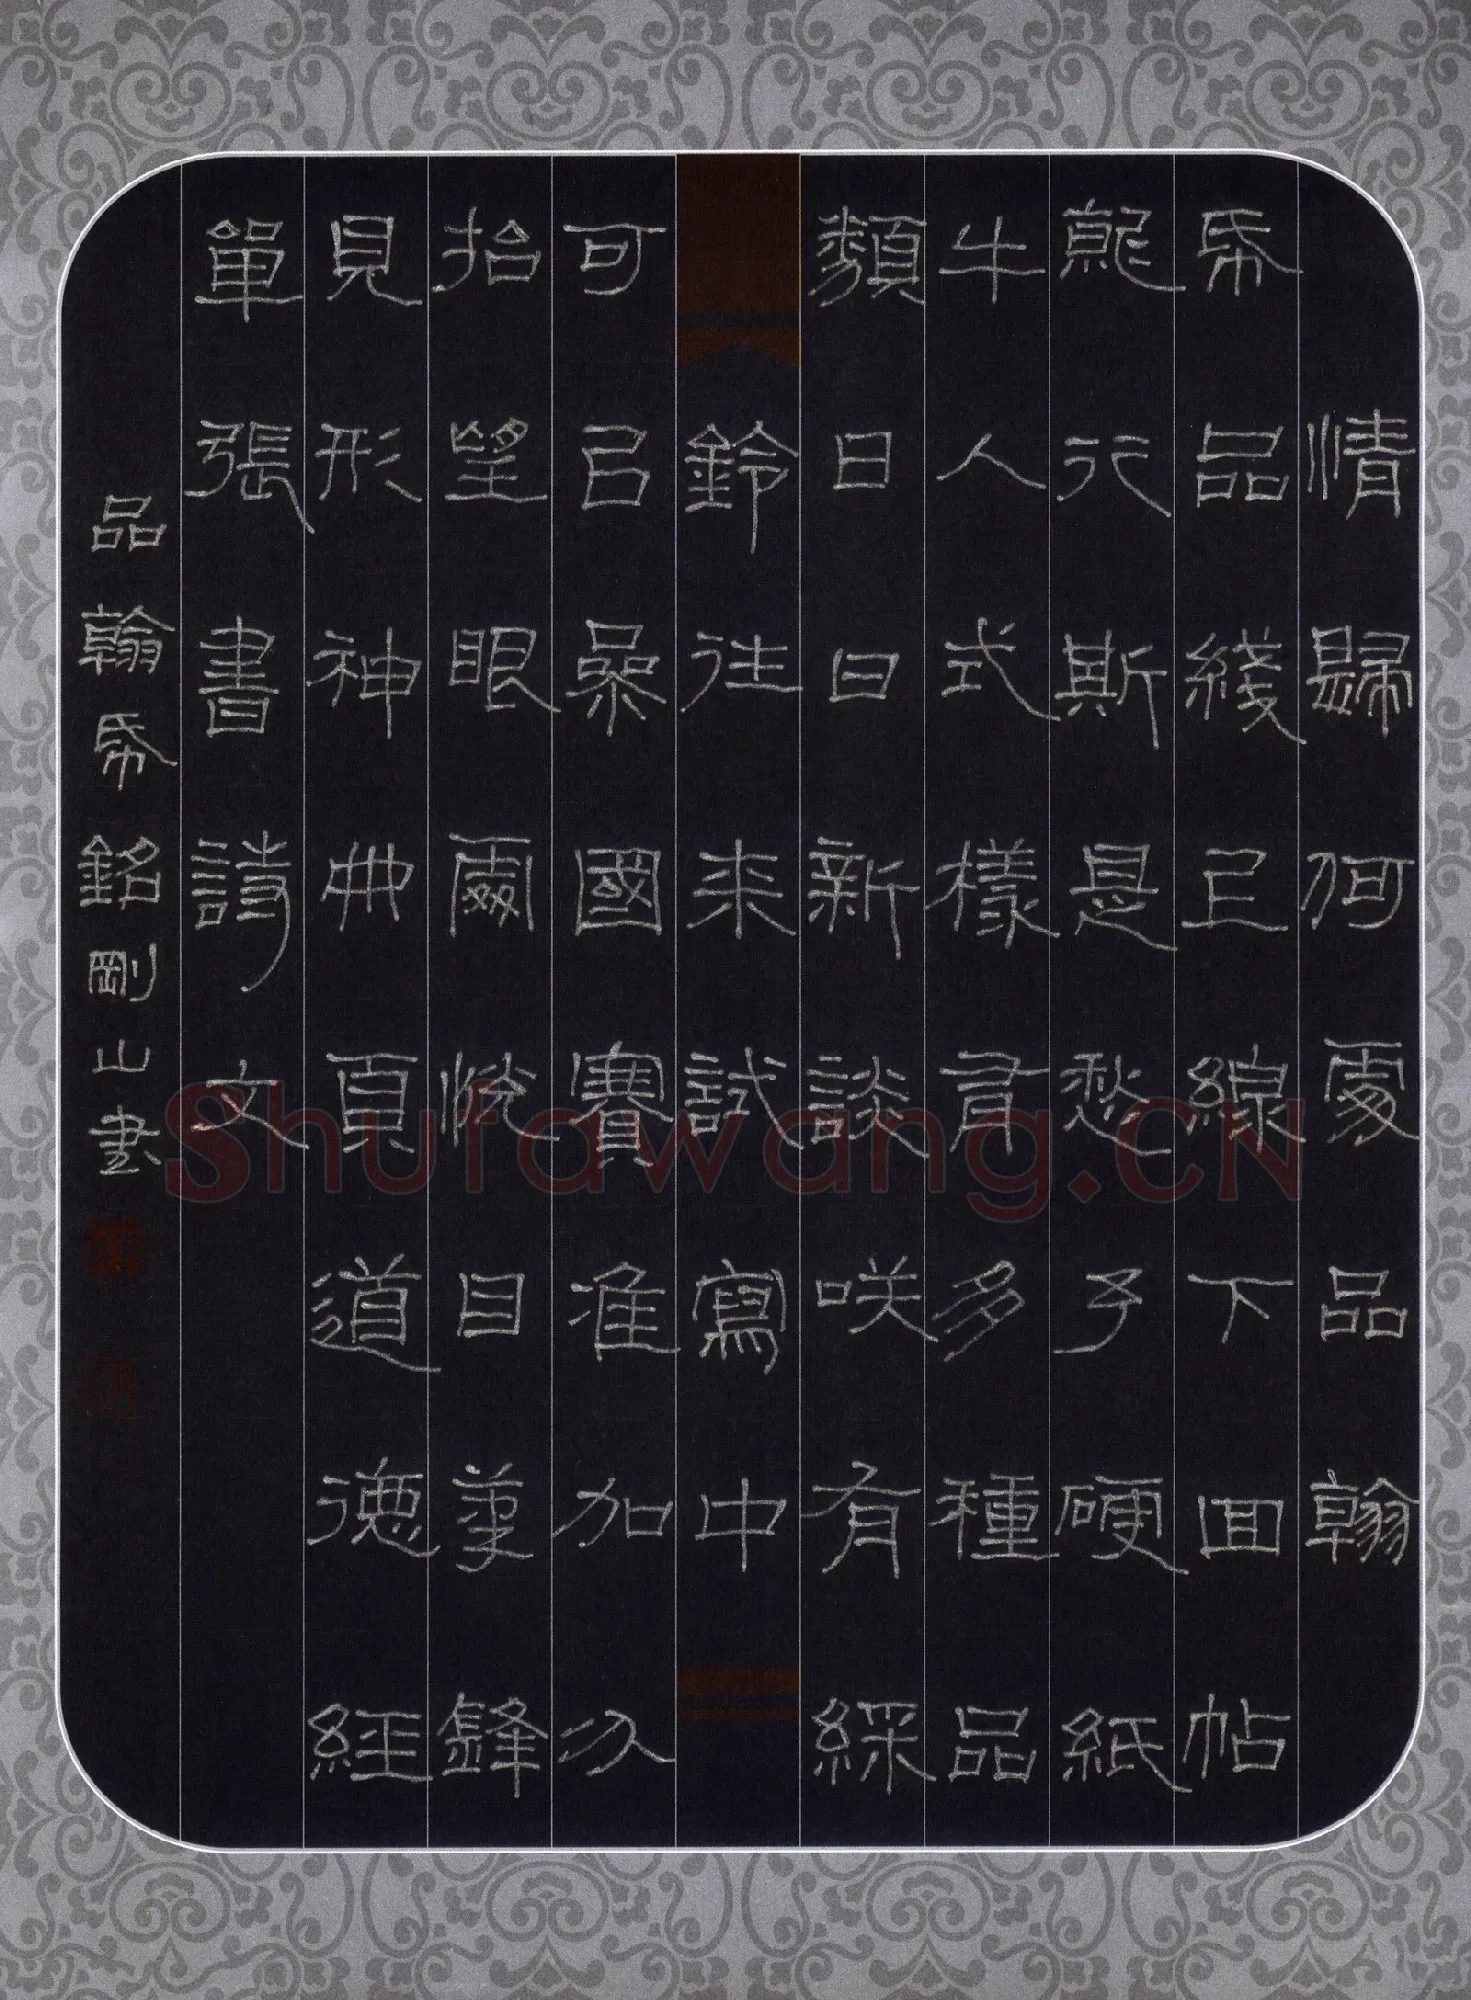 情歸何處品翰
帋品綫上線下回帖
行斯是愁予硬紙
牛人式樣多種品
類日日新談咲有綵
鈴往来試寫中
可㠯國賽准加分
抬望眼爾悅目筆鋒
見形神冊頁道德經
單張書詩文
品翰帋銘剛山書
Shufawang.CN